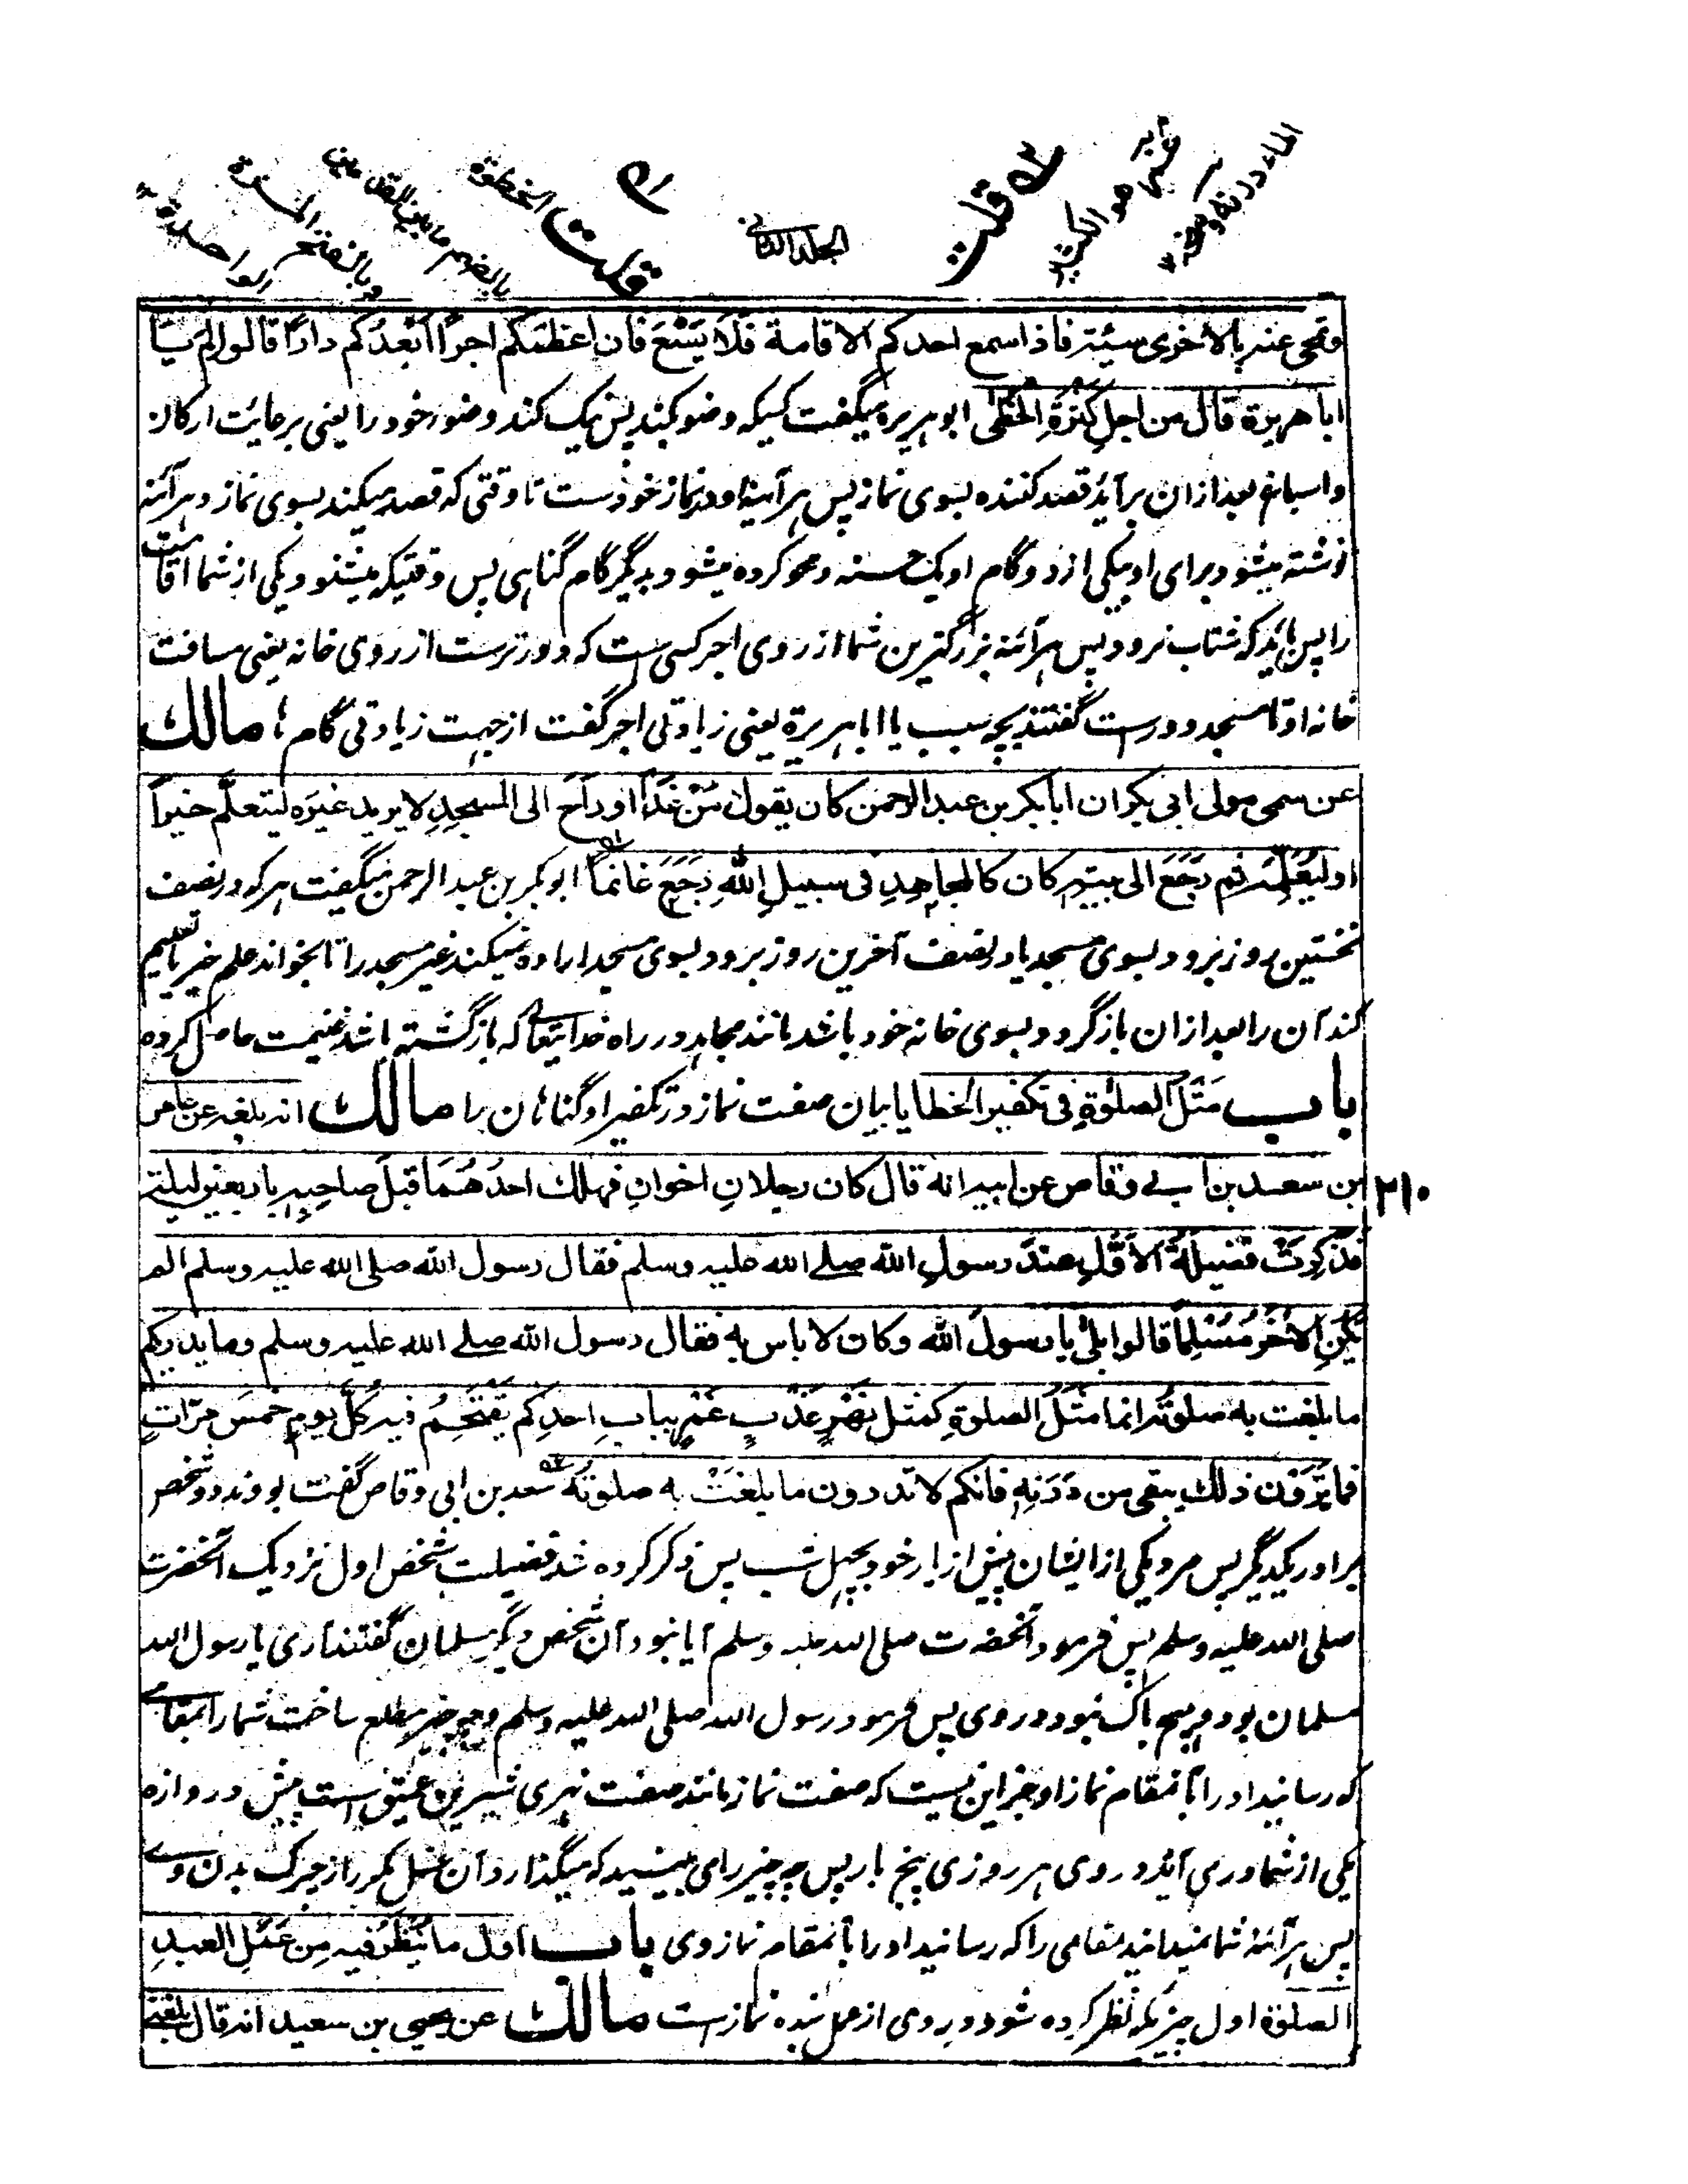 المجلد الثانی
قلت
قلت الخطوة بالضم ما بین القدمین
وبالفتح المرة الواحدة
وتمحی عنه بالاخری سیئة فاذا سمع احدکم الاقامة فلا یَسْعَ فان اعظمکم اجرًا اَبْعَدُکم دارًا قالوا لم یا
ابا هریرة قال من اجلِ کَثْرَةِ الخُطٰی ابو ہریرہ میگفت کسیکہ وضو کند پس نیک کند وضور خود را یعنی برعایت ارکان
و اسباغ بعد ازان برآید قصد کننده بسوی نماز پس ہرآئینہ او در نماز خودست تا وقتی کہ قصد میکند بسوی نماز و ہرآئنہ
نوشتہ میشود برای او بیکی از دو گام او یک حسنہ و محو کردہ میشود بدیگر گام گناہی پس وقتیکہ میشنود یکی از شما اقامت
را پس باید کہ شتاب نرود پس ہرآئنہ بزرگترین شما از روی اجر کسی ست کہ دورترست از روی خانہ یعنی مسافت
خانہ او تا مسجد دورست گفتند بچہ سبب یا ابا ہریرة یعنی زیادتی اجر گفت از جہت زیادتی گام ہا مالك
عن سمی مولی ابی بکر ان ابا بکر بن عبد الرحمن کان یقول مَنْ غَدَا او رَاحَ الی المسجدِ لا یرید غیرَه لیتعلَّم خیراً
او لیُعَلِّمَه ثم رَجَعَ الی بیته کان کالمجاهدِ فی سبیلِ اللّٰهِ رَجَعَ غانماً ابو بکر بن عبد الرحمن میگفت ہر کہ در نصف
نخستین روز برود بسوی مسجد یا در نصف آخرین روز برود بسوی مسجد ارادہ نمیکند غیر مسجد را تا بخواند علم خیر یا تعلیم
کند آن را بعد ازان بازگردد بسوی خانہ خود باشد مانند مجاہد در راہ خدایتعالی کہ بازگشتہ باشد غنیمت حاصل کردہ
باب مَثَلُ الصلوٰةِ فی تکفیر الخطایا بیان صفت نماز در تکفیر او گناہان را مالك انه بلغه عن عامر
بن سعد بن ابی وقاص عن ابیه انه قال کان رجلانِ اخوانِ فهلك احدُهُمَا قبلَ صاحبِهِ باربعین لیلة
فذُکِرَتْ فضیلةُ الاَوَّلِ عندَ رسولِ اللّٰه صلے الله علیه وسلم فقال رسول اللّٰه صلی اللّٰه علیه وسلم الم
یکُنِ الاٰخَرُ مُسْلِمًا قالوا بلٰی یا رسولَ اللّٰه وکان لا باس به فقال رسول اللّٰه صلے الله علیه وسلم وما یدریکم
ما بلغت به صلوتُه انما مَثَلُ الصلوةِ کمثل نَهْرٍ عَذْبٍ غَمْرٍ ببابِ احدِکم یقتَحِمُ فیه کلَّ یومٍ خمسَ مرّاتٍ
فما تَرَوْن ذلك یبقی من دَرَنِه فانکم لا تدرون ما بلغَتْ به صلوته سعد بن ابی وقاص گفت بودند دو شخص
برادر یکدیگر پس مرد یکی از ایشان پیش از یار خود بچہل شب پس ذکر کردہ شد فضیلت شخص اول نزدیک آنحضرت
صلی اللہ علیہ وسلم پس فرمود آنحضرت صلی اللہ علیہ وسلم آیا نبود آن شخص دیگر مسلمان گفتند آری یا رسول اللہ
مسلمان بود و ہیچ باک نبود در وی پس فرمود رسول اللہ صلی اللہ علیہ وسلم و چہ چیز مطلع ساخت شما را بمقامے
کہ رسانید او را بآنمقام نماز او جز این نیست کہ صفت نماز مانند صفت نہری شیرین عمیق است پیش دروازہ
یکی از شما در می آید در وی ہر روزی پنج بار پس چہ چیز رای می بینید کہ میگذارد آن غسل مکرر از چرک بدن وے
پس ہرآئنہ شما نمیدانید مقامی را کہ رسانید او را بآنمقام نماز وی باب اول ما یُنظَرُ فیه مِن عَمَلِ العبدِ
الصلوة اول چیزیکہ نظر کردہ شود در وی از عمل بندہ نمازست مالك عن یحیی بن سعید انه قال بلغنی
۲۱۰